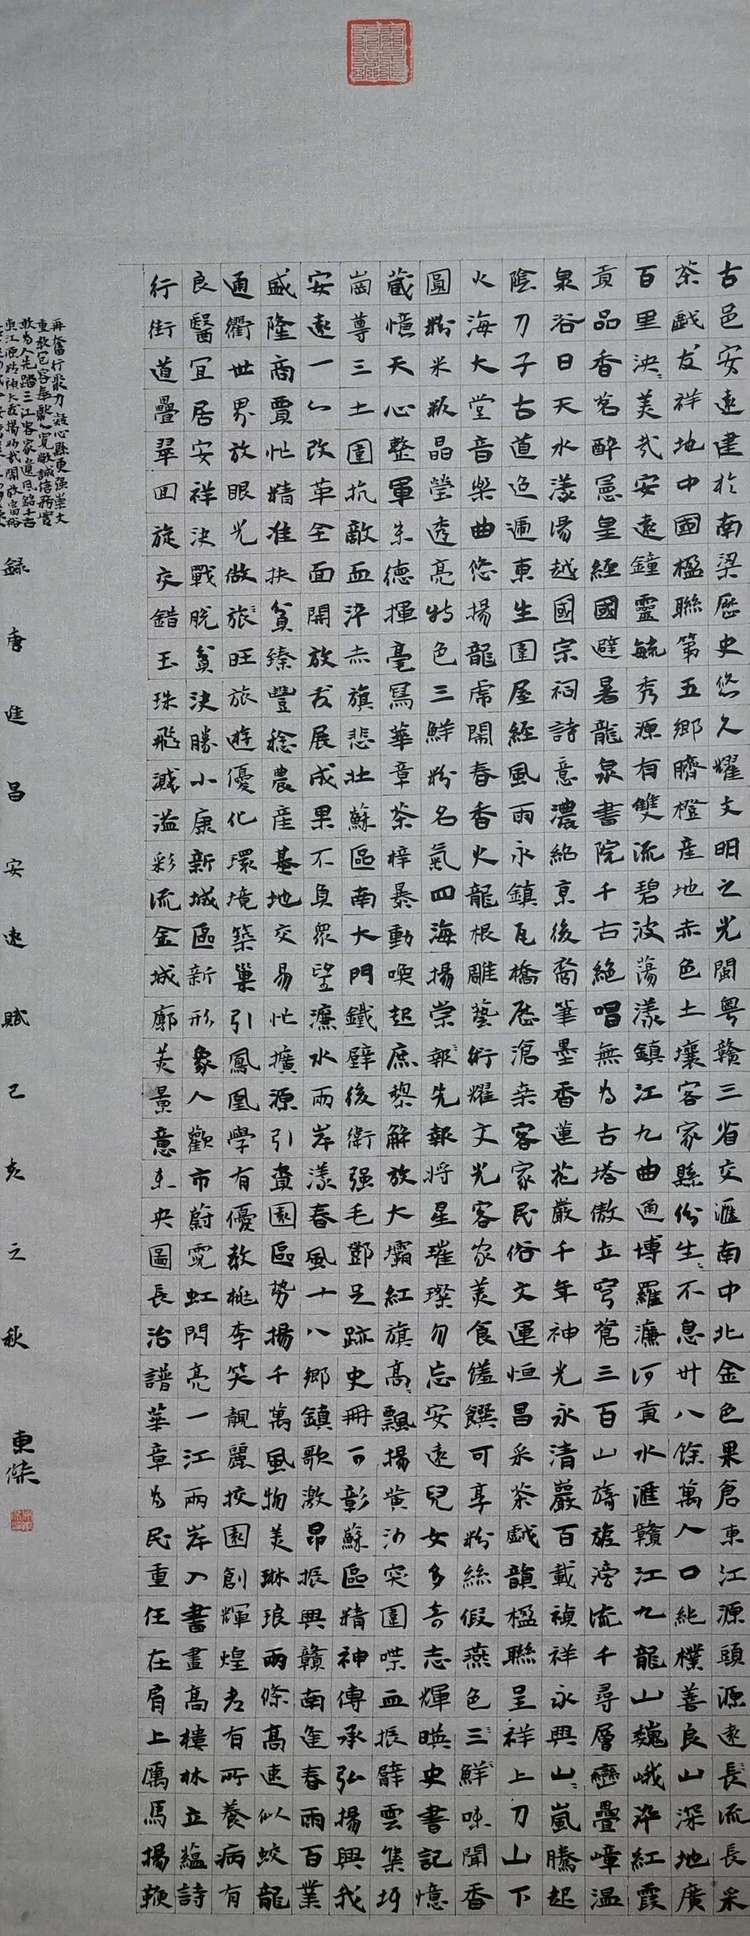 古邑安遠建於南梁歷史悠久耀文明之光閩粵贛三省交滙南中北金色果倉東江源頭源遠長流長采
茶戲友祥地中國楹聯第五鄉臍橙産地赤色土壤客家縣份生不息卅八餘萬人口純樸善良山深地廣
百里泱美哉安遠鐘靈毓秀源有雙流碧波蕩漾鎮江九曲通博羅濂河貢水滙贛江九龍山巍峨淬紅霞
貢品香茗醉憲皇經國避暑龍泉書院千古絕唱無為古塔傲立穹蒼三百山旖旎滂流千尋層巒疊嶂溫
泉谷日天水漾湯越國宗祠詩意濃紹京後裔筆墨香蓮花嚴千年神光永清巖百載禎祥永興山嵐騰起
陰刀子古道迤邐東生圍屋經風雨永鎮瓦橋歷滄桑客家民俗文運恒昌采茶戲韻楹聯呈祥上刀山下
火海大堂音樂曲悠揚龍虎鬧春香火龍根雕藝術耀文光客家美食饈饌可享粉絲假燕色三鮮味聞香
圓粉米瓤晶瑩透亮特色三鮮粉名氣四海揚崇報先報將星璀璨勿忘安遠兒女多奇志輝映史書記憶
蔵憶天心整軍朱德揮毫寫華章茶梓暴動喚起庶黎解放大壩紅旗高飄揚黄沙突圍喋血振臂雲集圩
崗尊三土圍抗敵血淬赤旗悲壯蘇區南大門鐵壁後衛强毛鄧足跡史冊可彰蘇區精神傳承弘揚興我
安遠一心改革全面開放发展成果不負眾望濂水兩岸漾春風十八鄉鎮歌激昂振興贛南進春雨百業
盛隆商賈忙精准扶貧臻豐稔農産基地交易忙擴源引資園區勢揚千萬風物美琳琅兩條高速似蛟龍
通衢世界放眼光做旅旺旅遊優化環境築巢引鳳凰學有優教桃李笑靚麗校園創輝煌老有所養病有
良醫宜居安祥決戰脫貧決勝小康新城區新形象人歡市蔚霓虹閃亮一江兩岸入書畫高樓林立蘊詩
行街道疊翠回旋交錯玉珠飛濺溢彩流金城廓美景意未央圖長治譜華章為民重任在肩上厲馬揚鞭
録唐進昌安遠賦己亥之秋
東傑